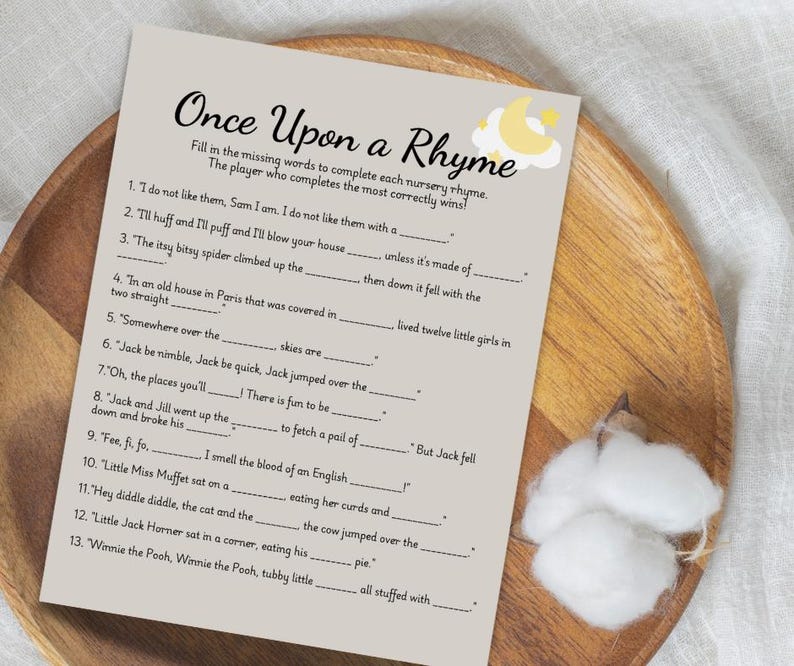 Once Upon a Rhyme
Fill in the missing words to complete each nursery rhyme.
The player who completes the most correctly wins!
1. "I do not like them, Sam I am. I do not like them with a ________."
2. "I'll huff and I'll puff and I'll blow your house ______, unless it's made of ________."
3. "The itsy bitsy spider climbed up the _________, then down it fell with the
________."
4. "In an old house in Paris that was covered in _________, lived twelve little girls in
two straight ________."
5. "Somewhere over the _________, skies are ________."
6. "Jack be nimble, Jack be quick, Jack jumped over the ________"
7."Oh, the places you'll ______! There is fun to be ________."
8. "Jack and Jill went up the ________ to fetch a pail of ________." But Jack fell
down and broke his _______."
9. "Fee, fi, fo, ________, I smell the blood of an English _________!"
10. "Little Miss Muffet sat on a _________, eating her curds and ________."
11."Hey diddle diddle, the cat and the _______, the cow jumped over the ________."
12. "Little Jack Horner sat in a corner, eating his _______ pie."
13. "Winnie the Pooh, Winnie the Pooh, tubby little _______ all stuffed with ______."